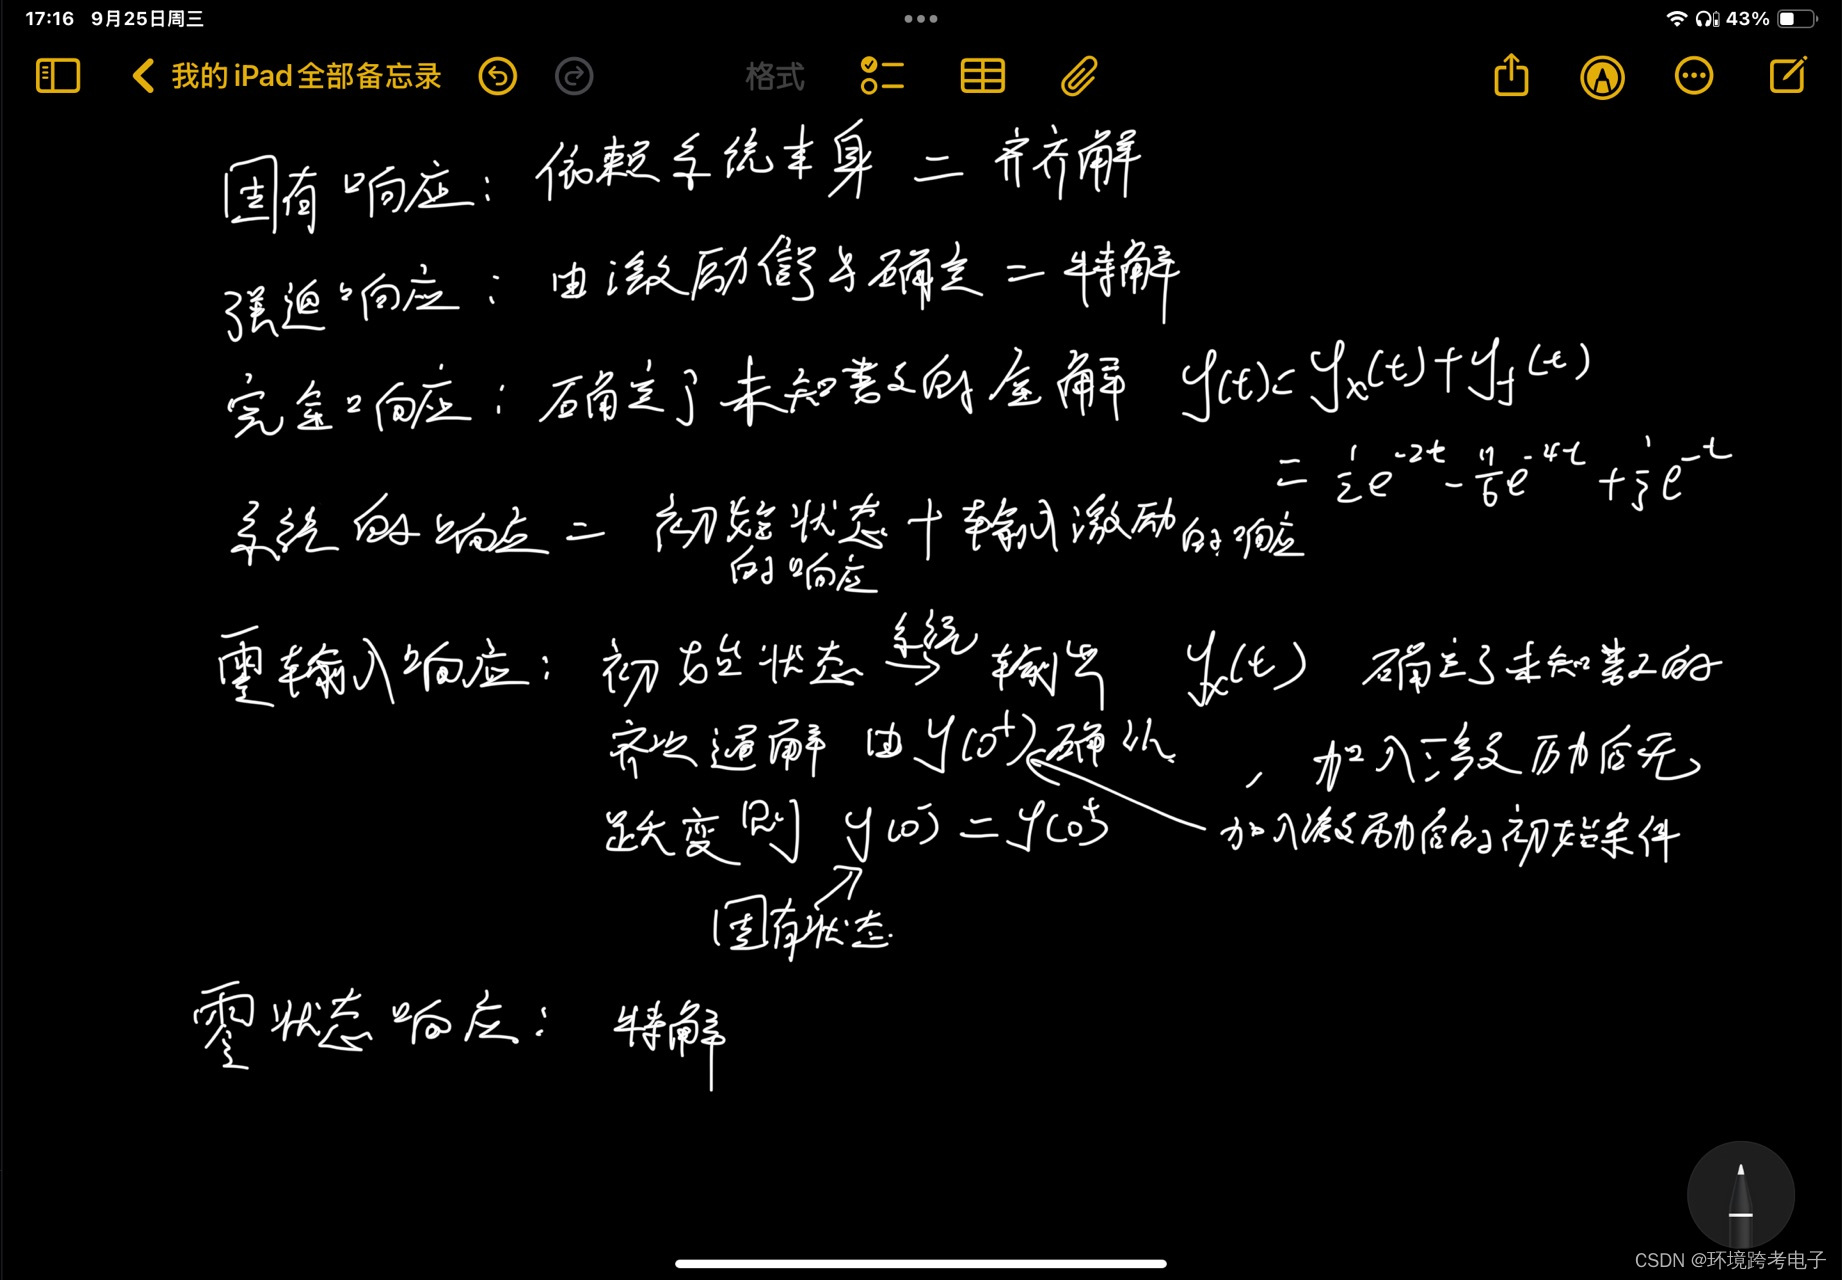 17:16 9月25日周三
43%
我的 iPad 全部备忘录
格式
固有响应：依赖系统本身 = 齐齐解
强迫响应：由激励信号确定 = 特解
完全响应：确定了未知数的全解 y(t)= yx(t)+yf(t)
= 1/2 e^-2t - 11/6 e^-4t + 1/3 e^-t
系统的响应 = 初始状态 + 输入激励的响应
的响应
零输入响应：初始状态 系统→ 输出 yx(t) 确定了未知数的
齐次通解 由 y(0+) 确认，加入激励后无
跃变则 y(0-) = y(0+) 加入激励后的初始条件
固有状态
零状态响应：特解
CSDN @环境跨考电子